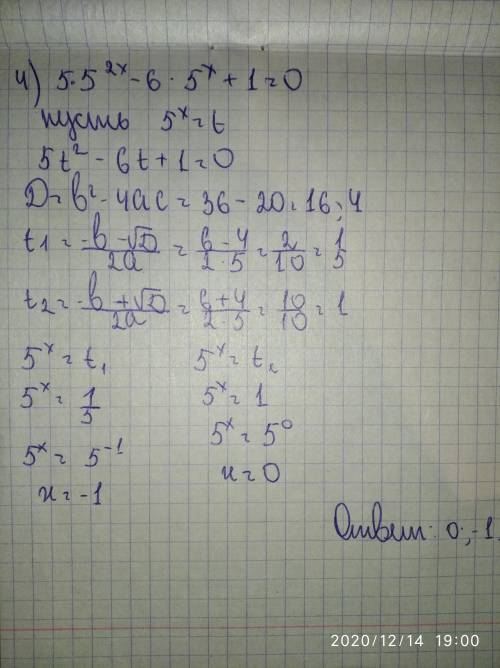 4) 5·5^2x - 6·5^x + 1 = 0
пусть 5^x = t
5t² - 6t + 1 = 0
D = b² - 4ac = 36 - 20 = 16; 4
t1 = -b - √D / 2a = 6 - 4 / 2·5 = 2/10 = 1/5
t2 = -b + √D / 2a = 6 + 4 / 2·5 = 10/10 = 1
5^x = t₁
5^x = 1/5
5^x = 5^-1
x = -1
5^x = t₂
5^x = 1
5^x = 5^0
x = 0
Ответ: 0; -1.
2020/12/14 19:00